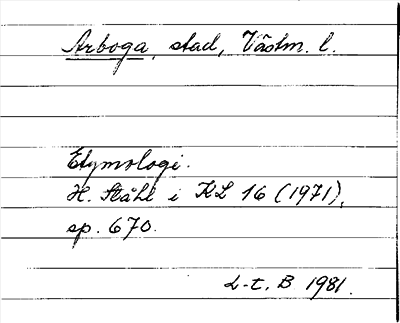 Arboga, stad, Västm. l.
Etymologi.
H. Ståhl i KL 16 (1971),
sp. 670.
L-t, B 1981.